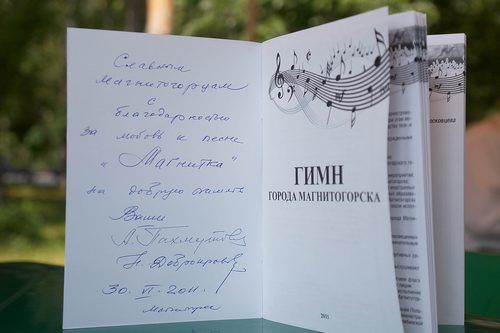 Славным
магнитогорцам
с
благодарностью
за любовь к песне
"Магнитка"
на добрую память
Ваши
А. Пахмутова
Н. Добронравов
30. VI. 2011.
Магнитогорск
ГИМН
ГОРОДА МАГНИТОГОРСКА
2011